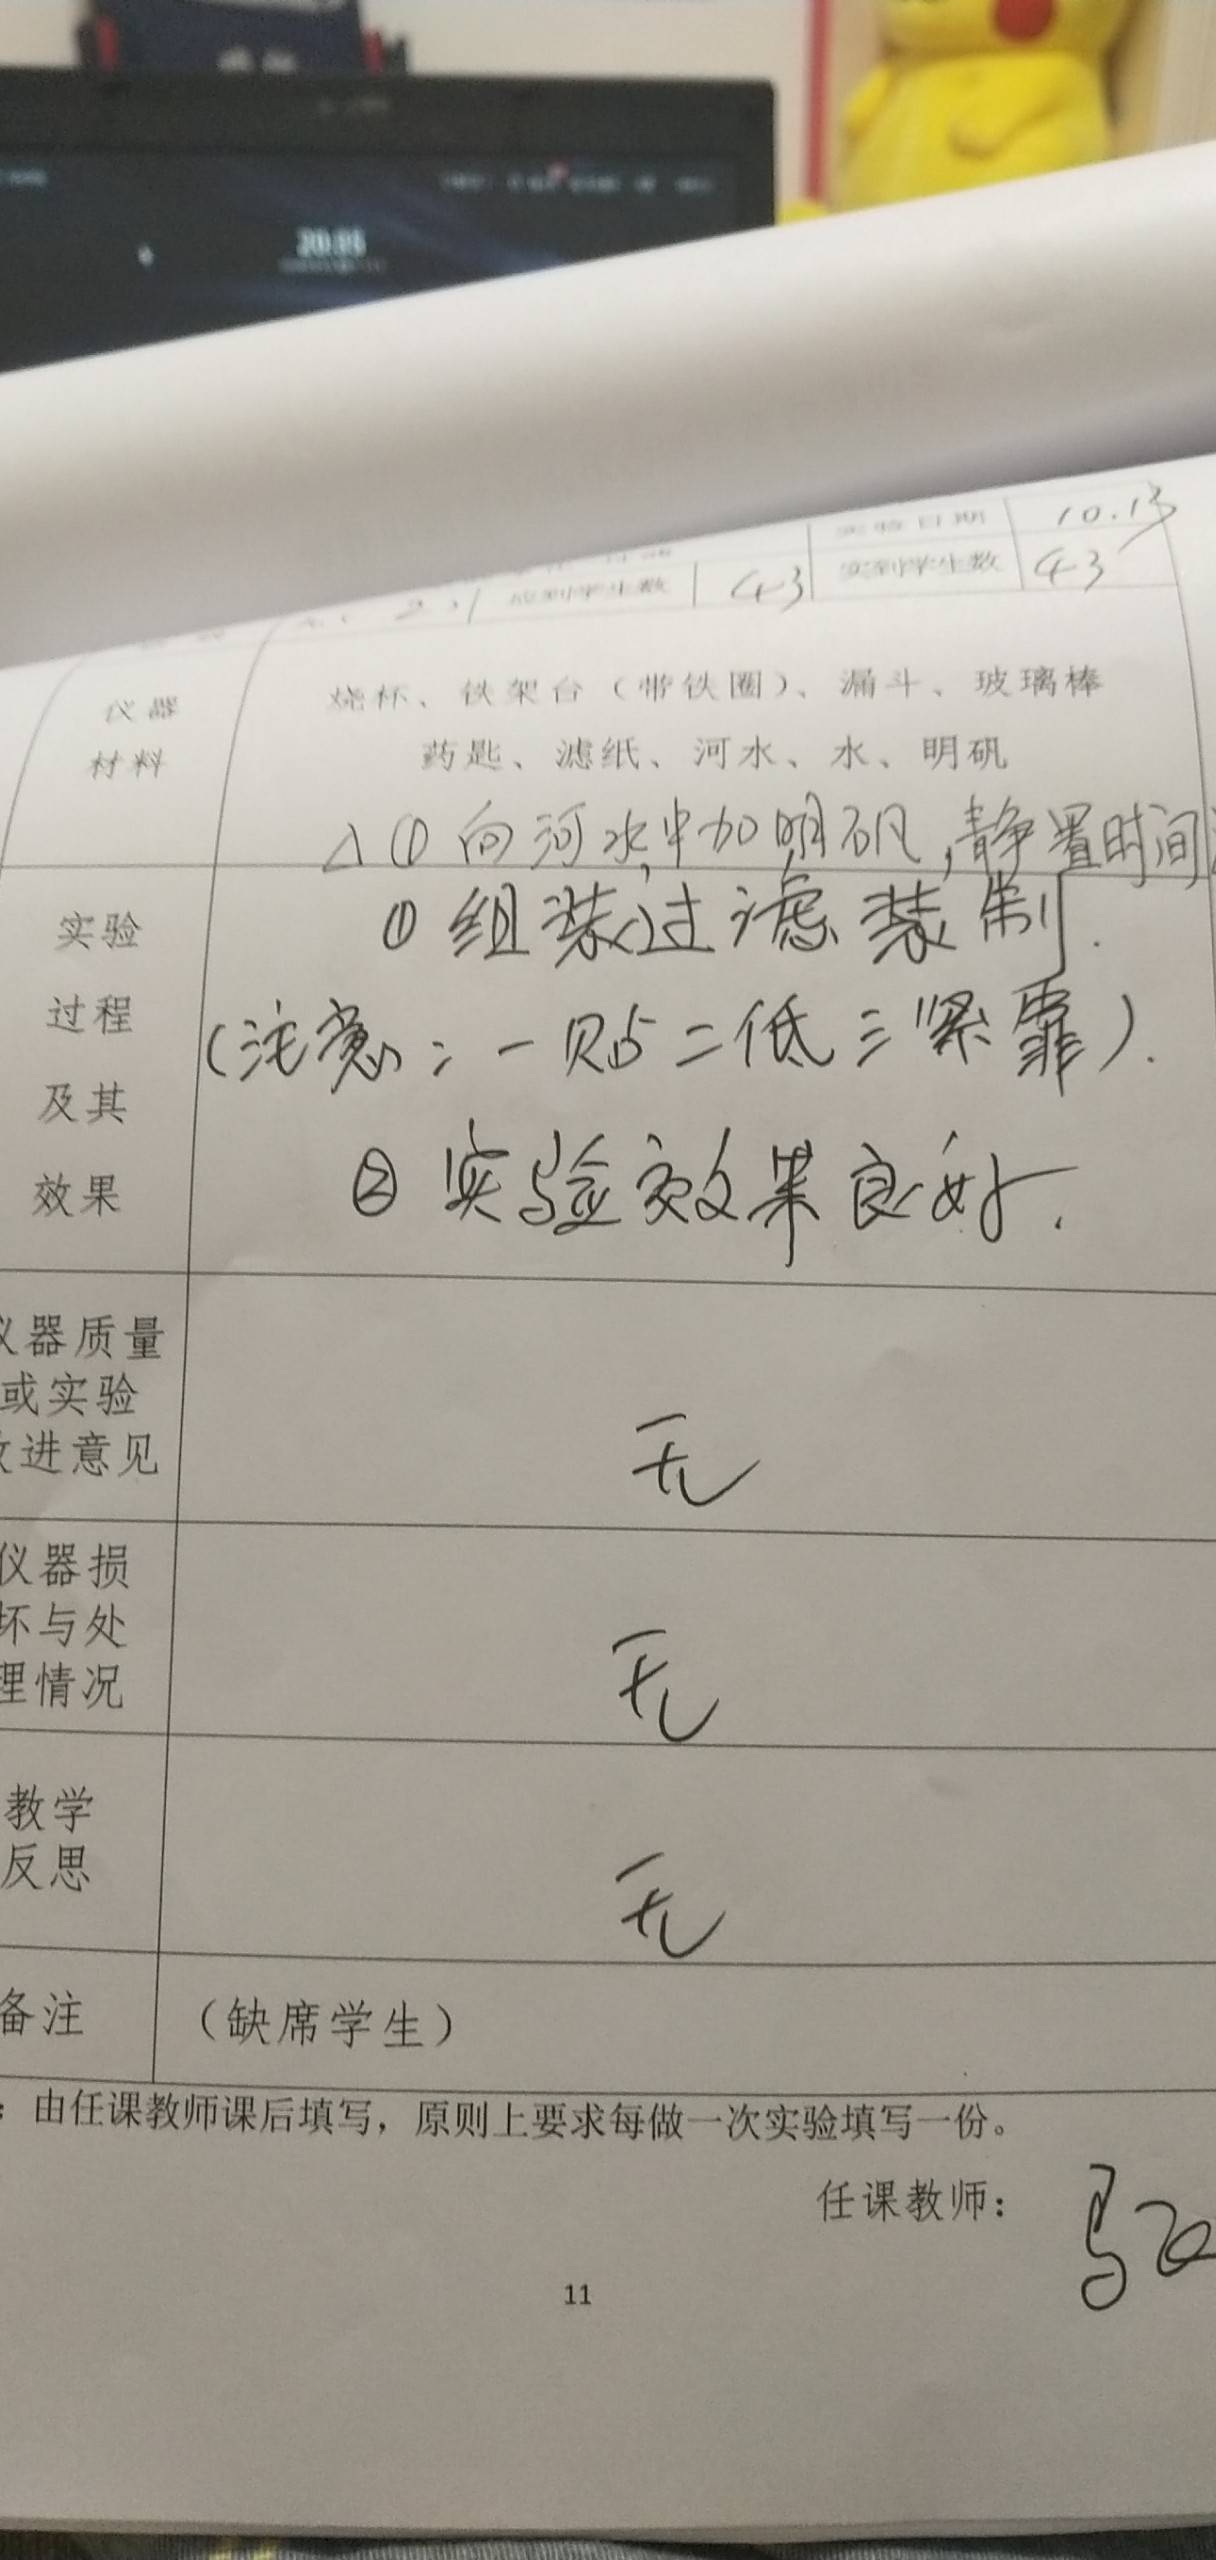 20:55
实验日期 10.13
应到学生数 43 实到学生数 43
仪器
材料
烧杯、铁架台（带铁圈）、漏斗、玻璃棒
药匙、滤纸、河水、水、明矾
△①向河水中加明矾，静置时间
实验
过程
及其
效果
①组装过滤装制.
(注意：一贴二低三紧靠).
②实验效果良好.
仪器质量
或实验
改进意见
无
仪器损
坏与处
理情况
无
教学
反思
无
备注
（缺席学生）
：由任课教师课后填写，原则上要求每做一次实验填写一份。
任课教师：
11